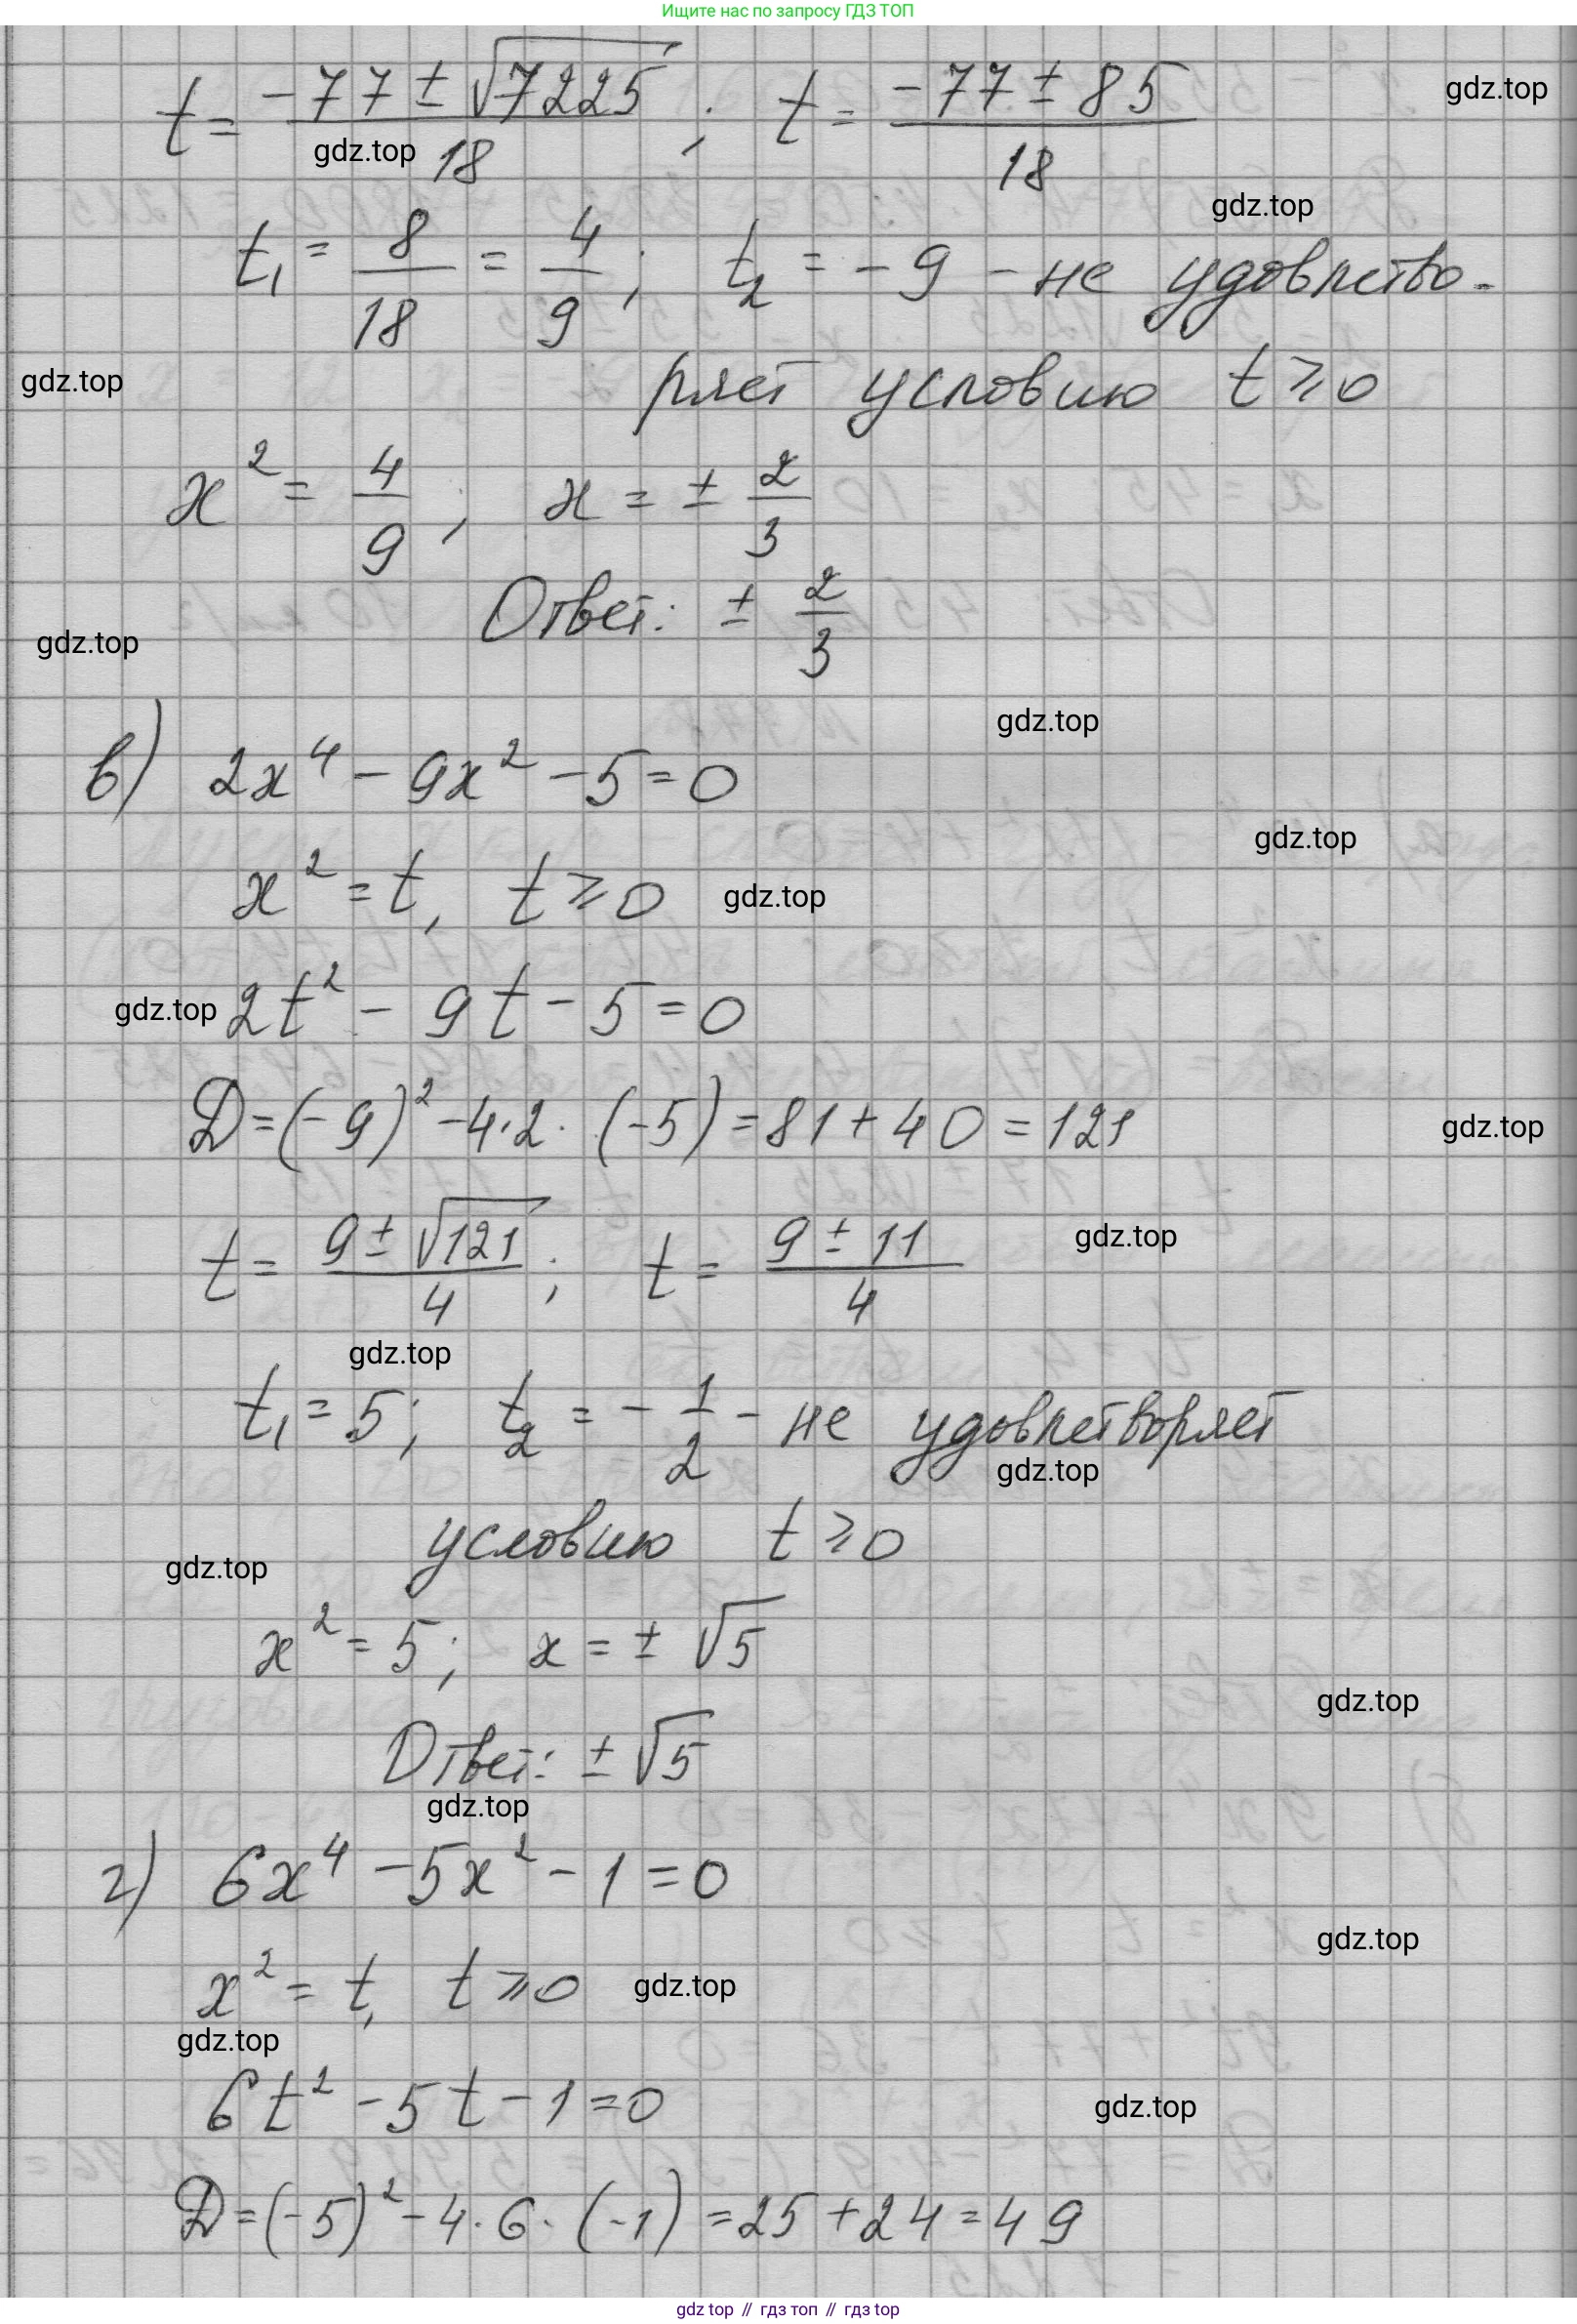 Ищите нас по запросу ГДЗ ТОП
t = (-77 ± √7225)/18 ; t = (-77 ± 85)/18
gdz.top
gdz.top
gdz.top
t₁ = 8/18 = 4/9 ; t₂ = -9 - не удовлетво-
gdz.top
ряет условию t ≥ 0
x² = 4/9 ; x = ± 2/3
Ответ: ± 2/3
gdz.top
gdz.top
в) 2x⁴ - 9x² - 5 = 0
gdz.top
x² = t, t ≥ 0 gdz.top
gdz.top 2t² - 9t - 5 = 0
D = (-9)² - 4·2·(-5) = 81 + 40 = 121
gdz.top
t = (9 ± √121)/4 ; t = (9 ± 11)/4
gdz.top
gdz.top
t₁ = 5; t₂ = - 1/2 - не удовлетворяет
gdz.top
условию t ≥ 0
gdz.top
x² = 5; x = ± √5
gdz.top
Ответ: ± √5
gdz.top
г) 6x⁴ - 5x² - 1 = 0
gdz.top
x² = t, t ≥ 0 gdz.top
gdz.top
6t² - 5t - 1 = 0
gdz.top
D = (-5)² - 4·6·(-1) = 25 + 24 = 49
gdz top // гдз топ // гдз top